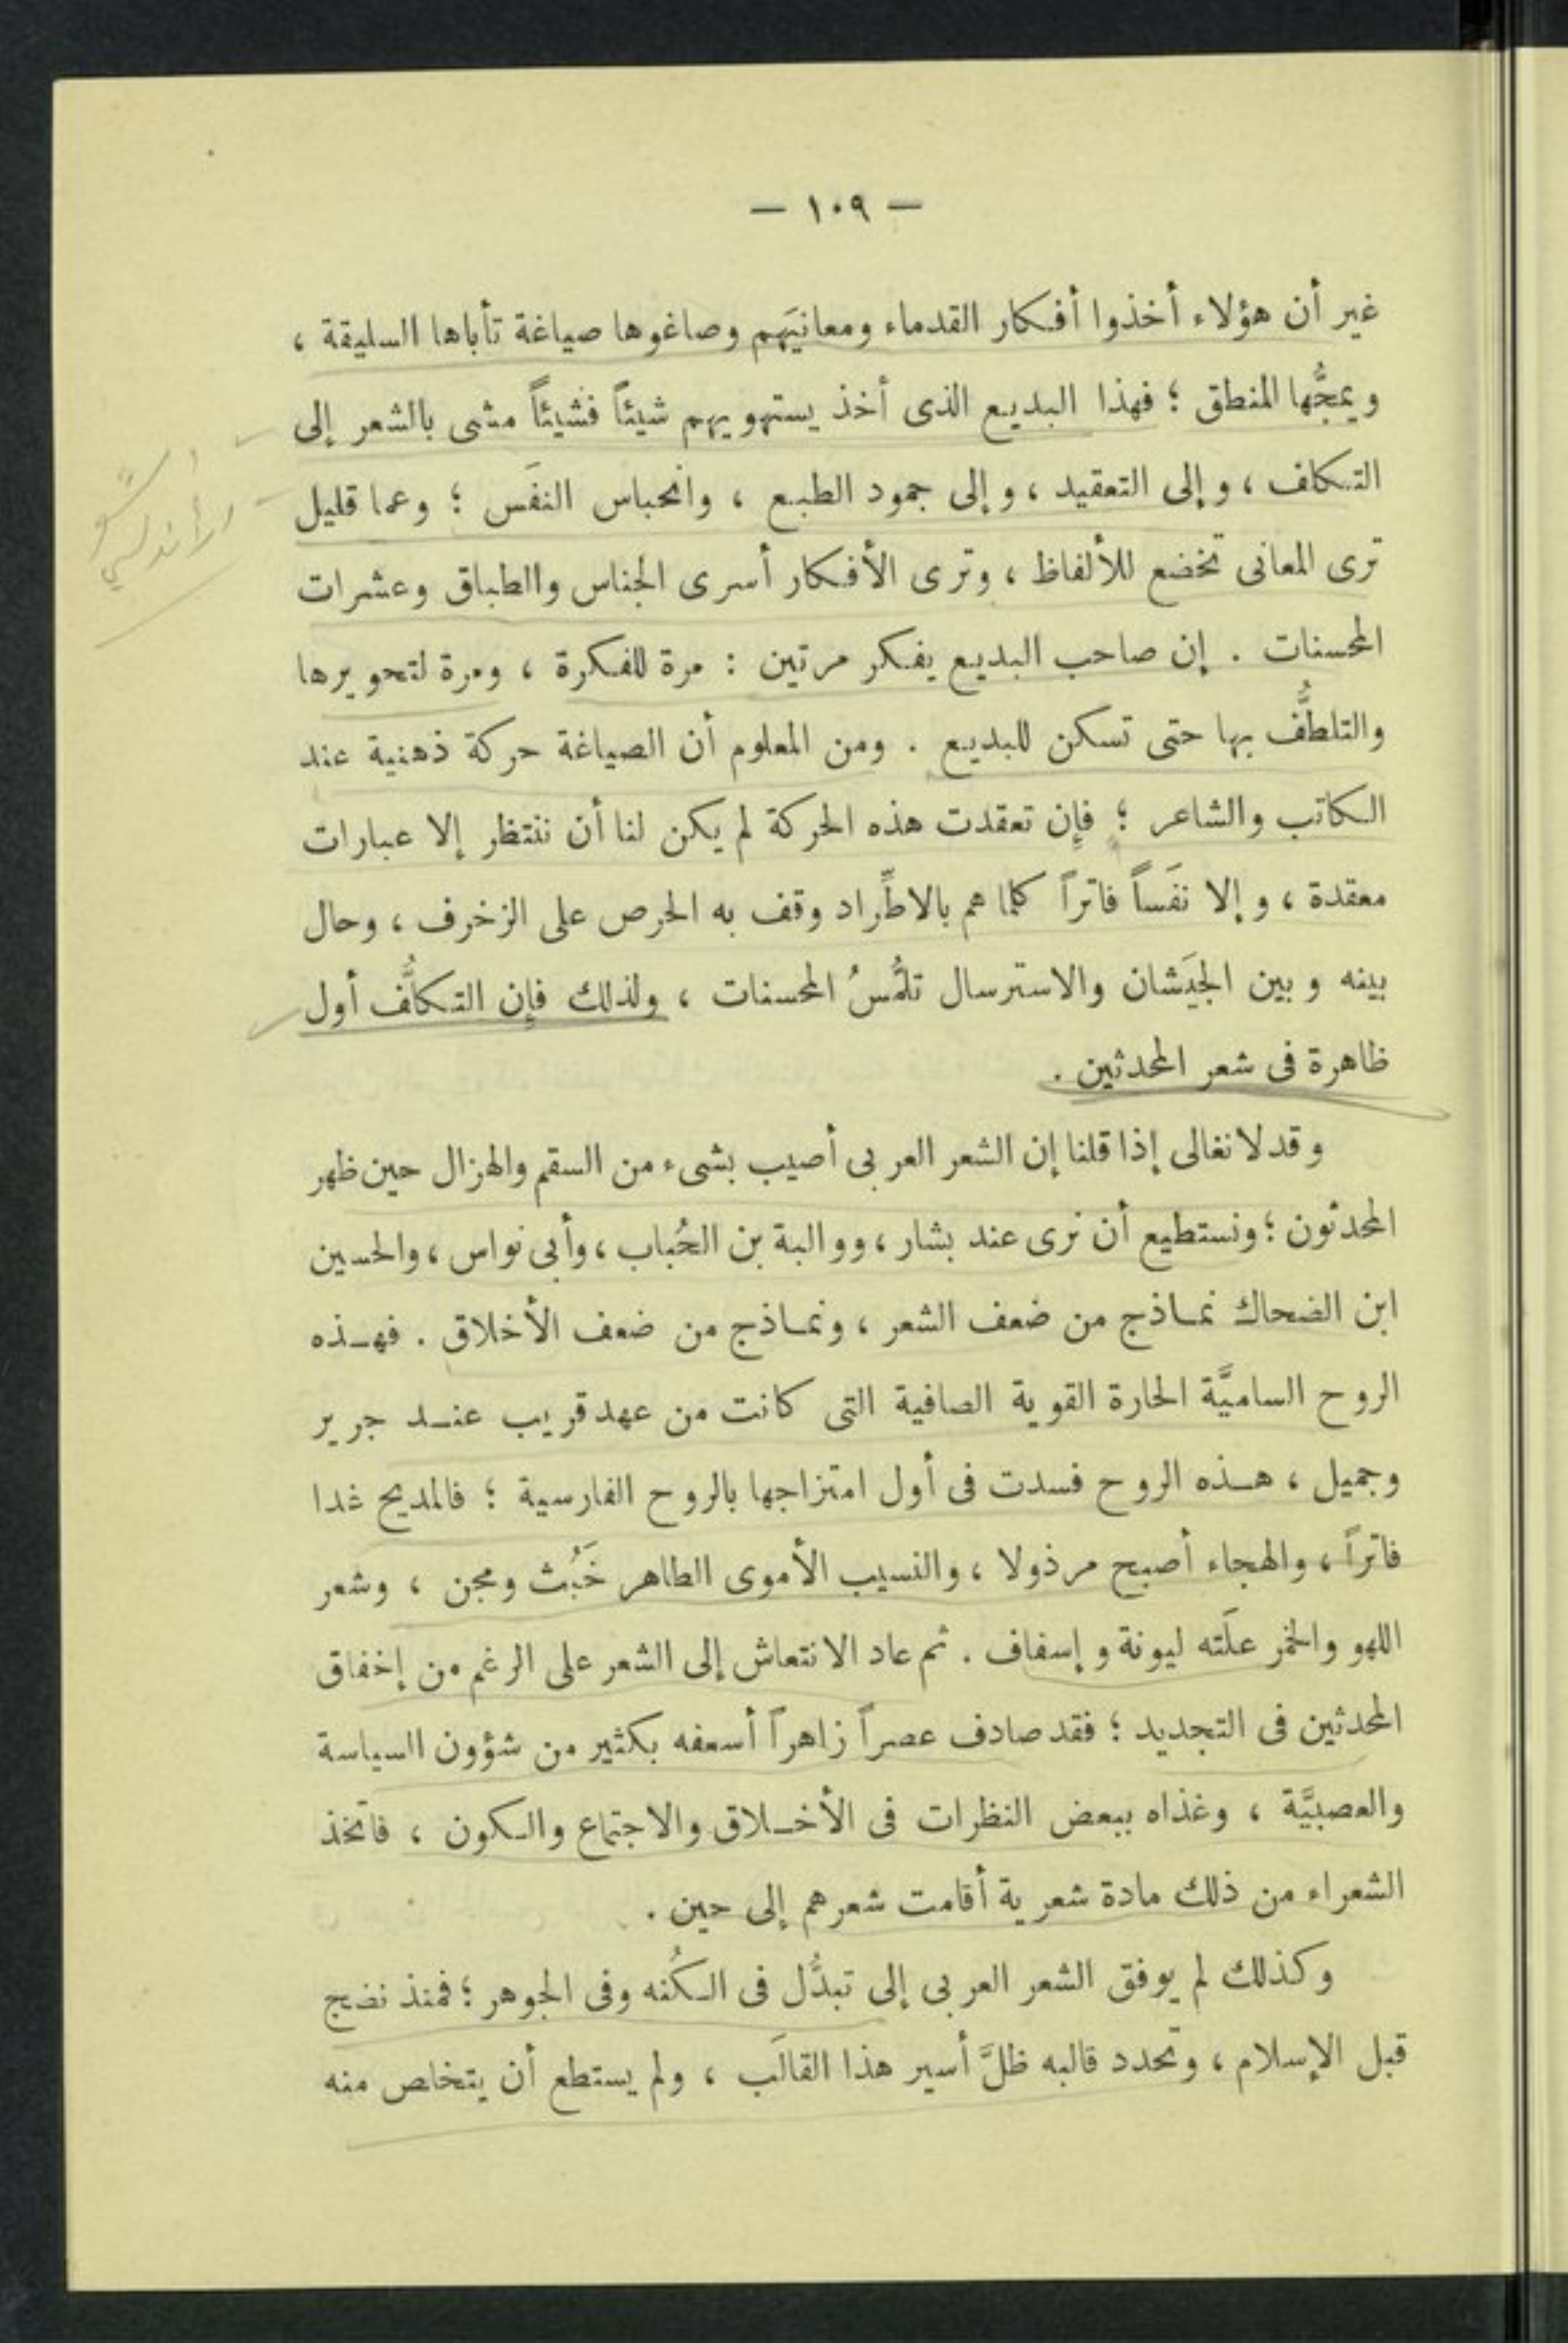 — ١٠٩ —
غير أن هؤلاء أخذوا أفكار القدماء ومعانيَهم وصاغوها صياغة تأباها السليقة ،
ويمجُّها المنطق ؛ فهذا البديع الذى أخذ يستهويهم شيئاً فشيئاً مشى بالشعر إلى
التكلف ، وإلى التعقيد ، وإلى جمود الطبع ، وانحباس النفَس ؛ وعما قليل
ترى المعانى تخضع للألفاظ ، وترى الأفكار أسرى الجناس والطباق وعشرات
المحسنات . إن صاحب البديع يفكر مرتين : مرة للفكرة ، ومرة لتحويرها
والتلطُّف بها حتى تسكن للبديع . ومن المعلوم أن الصياغة حركة ذهنية عند
الكاتب والشاعر ؛ فإن تعقدت هذه الحركة لم يكن لنا أن ننتظر إلا عبارات
معقدة ، وإلا نفَساً فاتراً كلما هم بالاطِّراد وقف به الحرص على الزخرف ، وحال
بينه وبين الجيَشان والاسترسال تلمُّسُ المحسنات ، ولذلك فإن التكلُّف أول
ظاهرة فى شعر المحدثين .
وقد لا نغالى إذا قلنا إن الشعر العربى أصيب بشىء من السقم والهزال حين ظهر
المحدثون ؛ ونستطيع أن نرى عند بشار ، ووالبة بن الحُباب ، وأبى نواس ، والحسين
ابن الضحاك نماذج من ضعف الشعر ، ونماذج من ضعف الأخلاق . فهذه
الروح الساميَّة الحارة القوية الصافية التى كانت من عهد قريب عند جرير
وجميل ، هذه الروح فسدت فى أول امتزاجها بالروح الفارسية ؛ فالمديح غدا
فاتراً ، والهجاء أصبح مرذولا ، والنسيب الأموى الطاهر خَبُث ومجن ، وشعر
اللهو والخمر علَته ليونة وإسفاف . ثم عاد الانتعاش إلى الشعر على الرغم من إخفاق
المحدثين فى التجديد ؛ فقد صادف عصراً زاهراً أسعفه بكثير من شؤون السياسة
والعصبيَّة ، وغذاه ببعض النظرات فى الأخلاق والاجتماع والكون ، فاتخذ
الشعراء من ذلك مادة شعرية أقامت شعرهم إلى حين .
وكذلك لم يوفق الشعر العربى إلى تبدُّل فى الكُنه وفى الجوهر ؛ فمنذ نضج
قبل الإسلام ، وتحدد قالبه ظلَّ أسير هذا القالَب ، ولم يستطع أن يتخلص منه